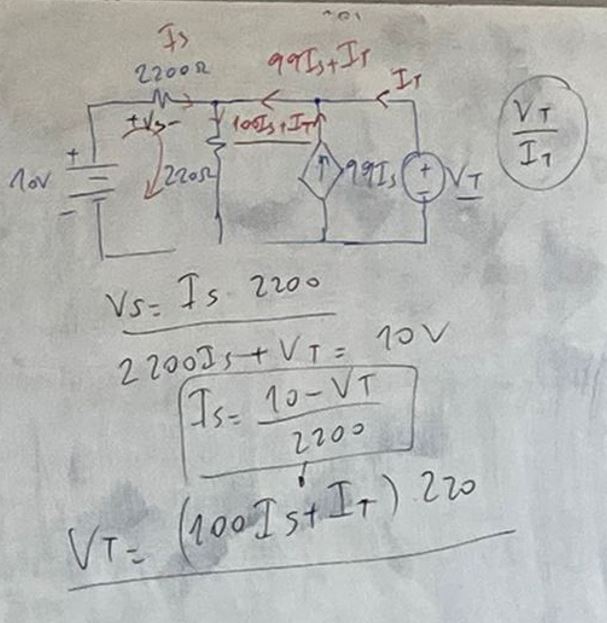 Is
2200Ω
99Is+IT
IT
+Vs-
100Is+IT
VT
IT
+
10V
-
220Ω
99Is
+
-
VT
Vs= Is 2200
2200Is + VT = 10V
Is= 10-VT
2200
VT= (100Is+IT) 220